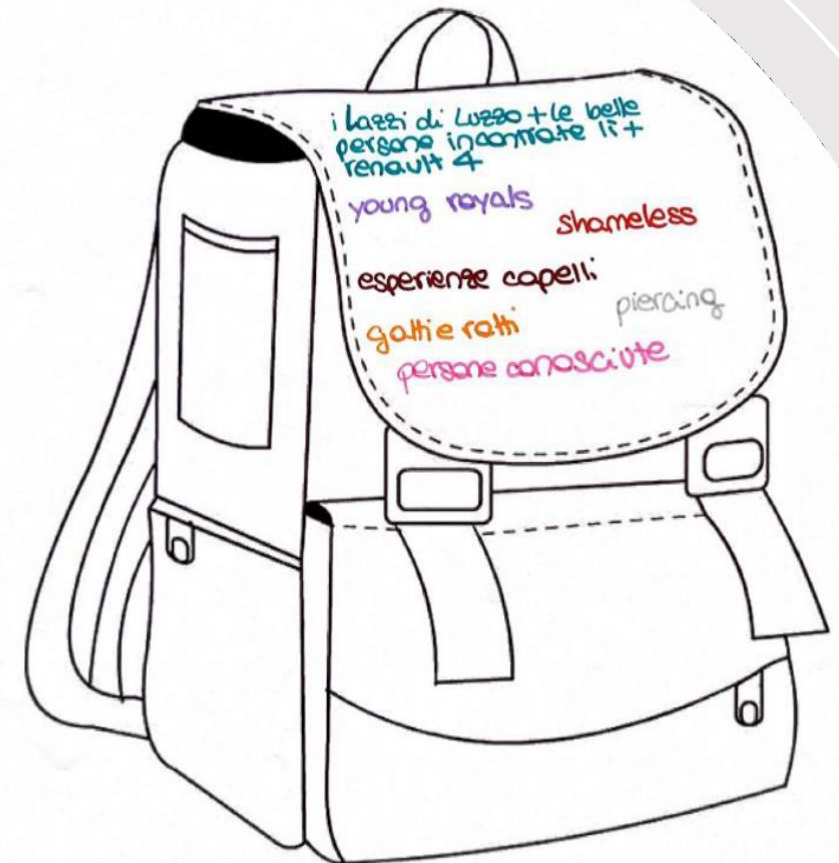 i Lazzi di Luzzo + le belle
persone incontrate lì +
renault 4
young royals
shameless
esperienze capelli
piercing
gatti e ratti
persone conosciute